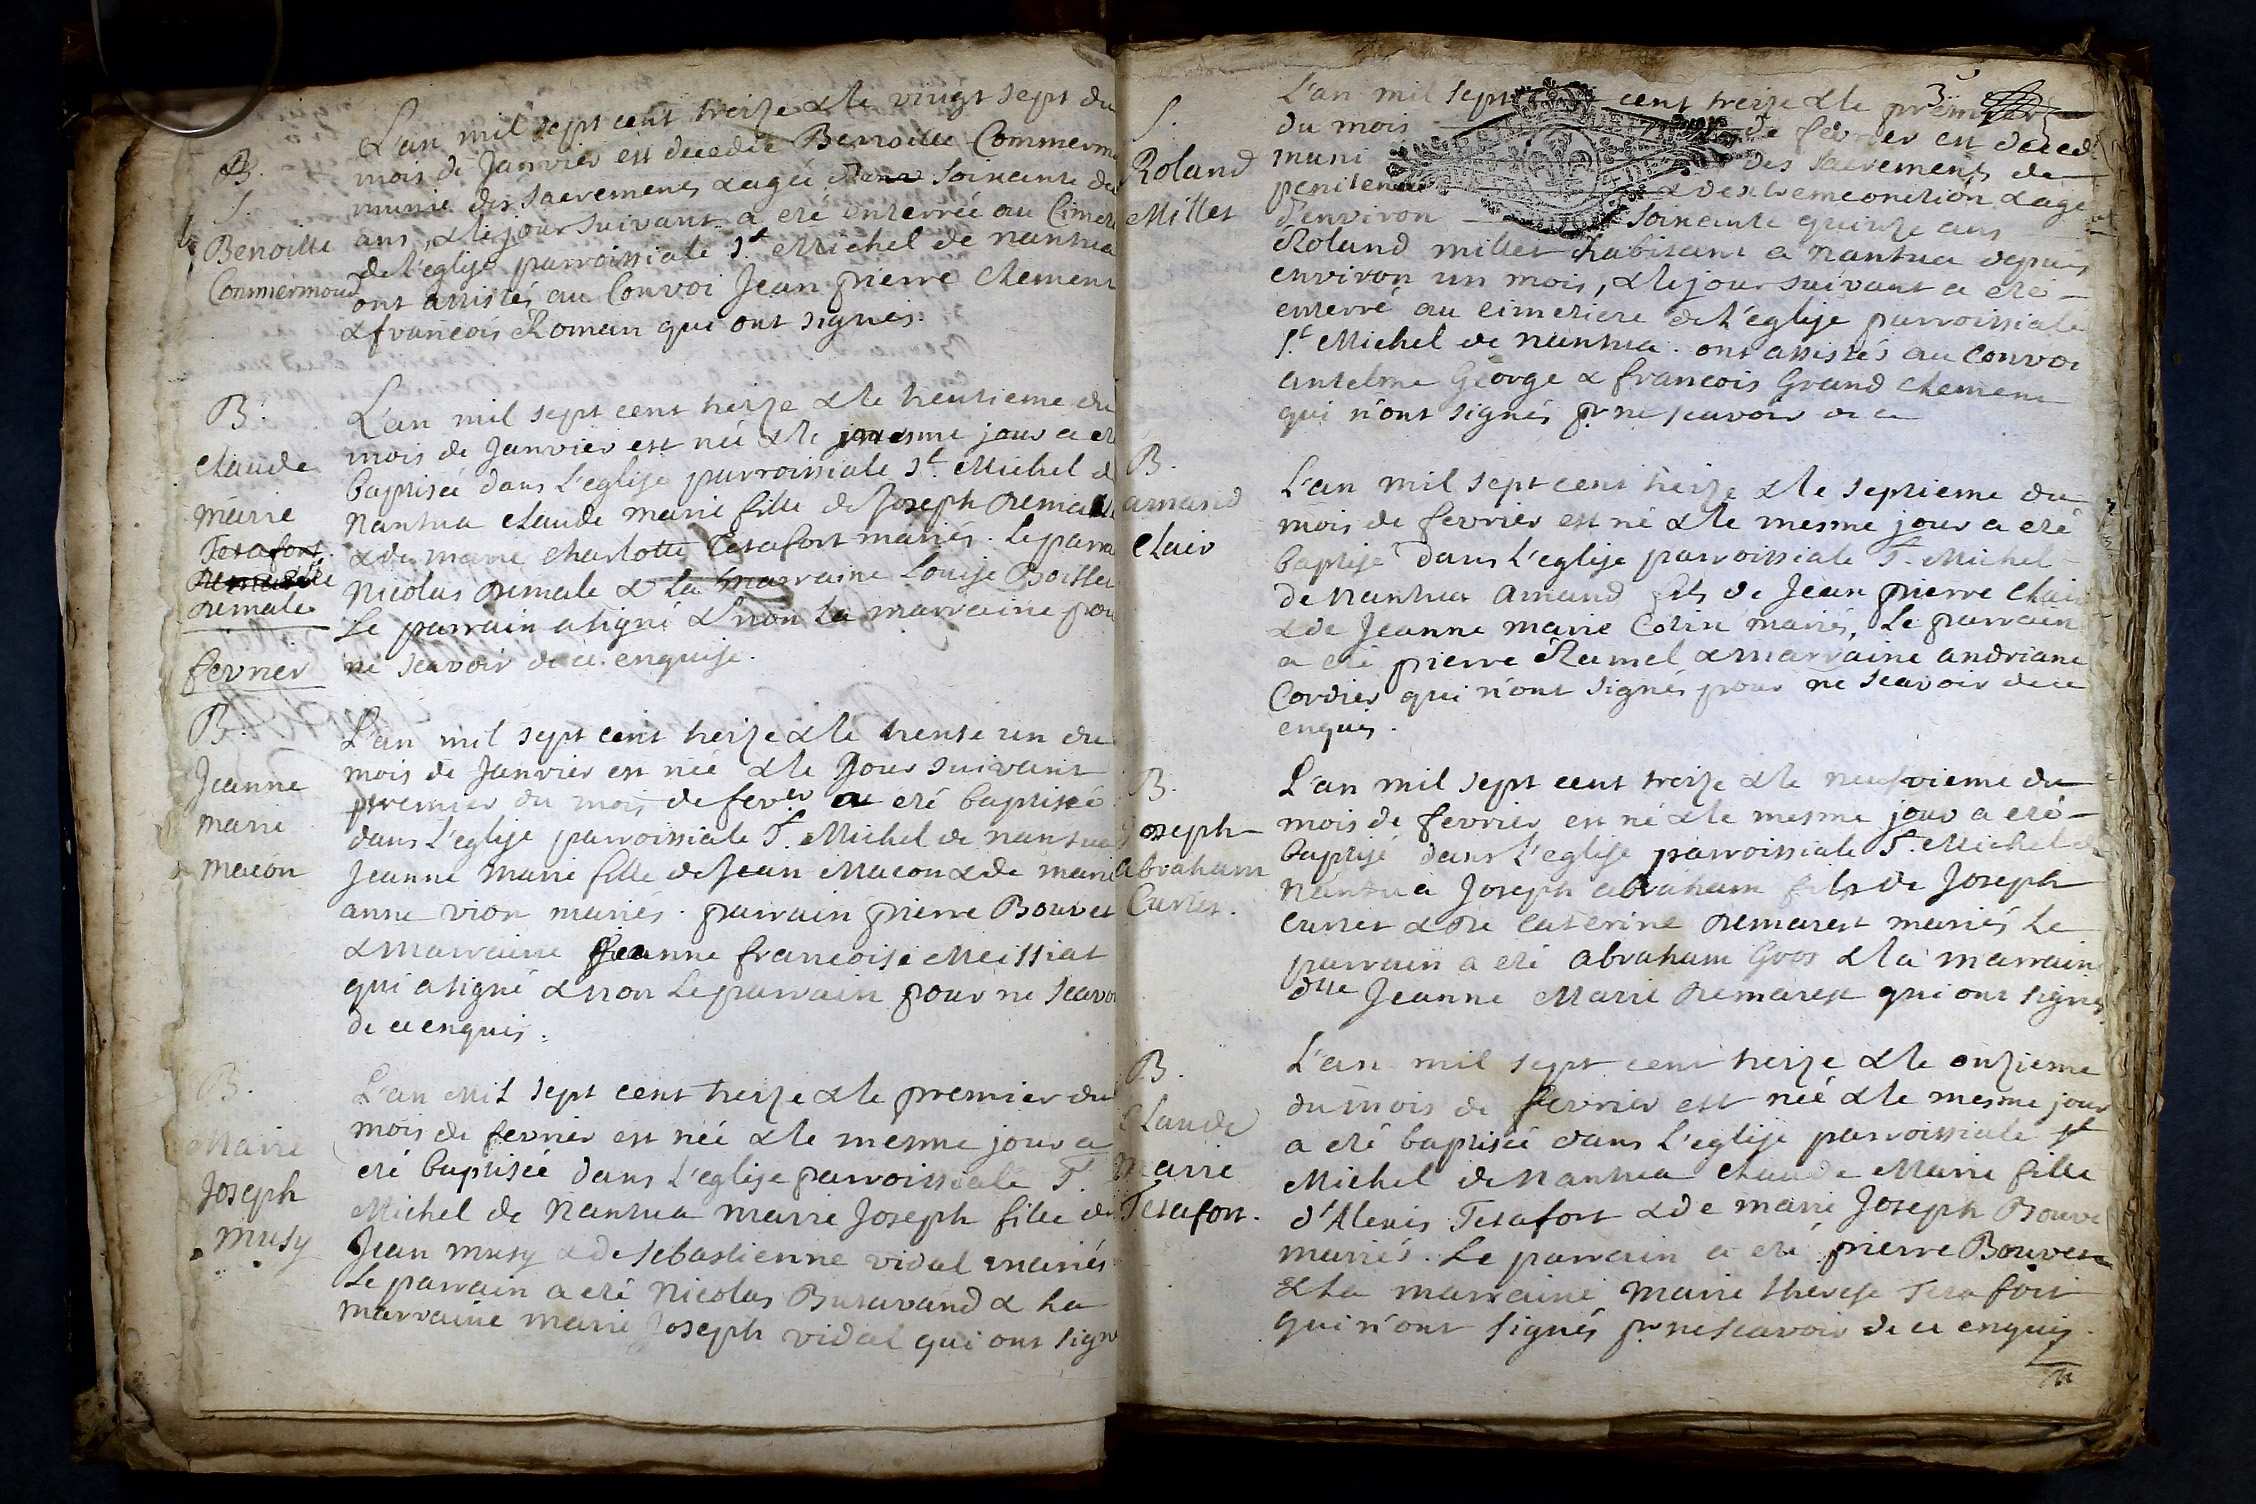 B.
S.
Benoitte
Commermond
L'an mil sept cent treize & le vingt sept du
mois de Janvier est decedée Benoitte Commerm
munie des sacrements & agée soixante de
ans, & le jour suivant a eté enterrée au Cimet
de l'eglise parroissiale St. Michel de nantua
ont assistés au Convoi Jean pierre Clement
& francois Roman qui ont signés.
B.
Claude
marie
Tetafort
remale
L'an mil sept cent treize & le trentieme du
mois de Janvier est née & le mesme jour a et
baptisée dans l'eglise parroissiale St. Michel d
Nantua Claude marie fille de Joseph remale
& de marie Charlotte Tetafort mariés. Le parra
Nicolas remale & la marraine Louise Boitte
Le parrain a signé & non la marraine pou
ne scavoir de ce enquise.
fevrier
B.
Jeanne
marie
macon
L'an mil sept cent treize & le trente un du
mois de Janvier est née & le Jour suivant
premier du mois de fever a eté baptisée
dans L'eglise parroissiale St. Michel de nantua
Jeanne marie fille de Jean Macon & de marie
anne vion mariés. parrain pierre Bouvet
& Marraine Jeanne francoise Meissiat
qui a signé & non Le parrain pour ne scavo
de ce enquis.
B.
Marie
Joseph
musy
L'an Mil sept cent treize & le premier du
mois de fevrier est née & le mesme jour a
eté baptisée dans L'eglise parroissiale St.
Michel de Nantua marie Joseph fille de
Jean musy & de sebastienne vidal mariés
Le parrain a eté Nicolas Buravand & la
marraine marie Joseph vidal qui ont signe
3
S.
Roland
Millet
L'an mil sept cent treize & le premier
du mois de fevrier est deced
muni des sacrements de
penitence & d'extremeonction & agé
d'environ soixante quinze ans
Roland millet habitant a Nantua depuis
environ un mois, & le jour suivant a eté
enterré au cimetiere de l'eglise parroissiale
St. Michel de nantua. ont assistés au Convoi
antelme George & francois Grand clement
qui n'ont signés pr. ne scavoir de ce
B.
amand
Clair
L'an mil sept cent treize & le septieme du
mois de fevrier est né & le mesme jour a eté
baptisé dans L'eglise parroissiale St. Michel
de nantua Amand fils de Jean pierre Clair
& de Jeanne marie Colin mariés, Le parrain
a eté pierre Ramel & marraine andriane
Cordier qui n'ont signés pour ne scavoir de ce
enquis.
B.
Joseph
Abraham
Curtet.
L'an mil sept cent treize & le neufvieme du
mois de fevrier est né & le mesme jour a eté
baptisé dans L'eglise parroissiale St. Michel de
Nantua Joseph abraham fils de Joseph
curtet & de Caterine remarest mariés Le
parrain a eté abraham Gros & la marraine
dlle Jeanne Marie remarest qui ont signés
B.
Claude
Marie
Tetafort.
L'an mil sept cent treize & le onzieme
du mois de fevrier est née & le mesme jour
a eté baptisée dans L'eglise parroissiale St
Michel de Nantua Claude Marie fille
d'Alexis Tetafort & de marie Joseph Bouve
mariés. Le parrain a eté pierre Bouvet
& la marraine Marie therese Tetafort
qui n'ont signés pr. ne scavoir de ce enquis.